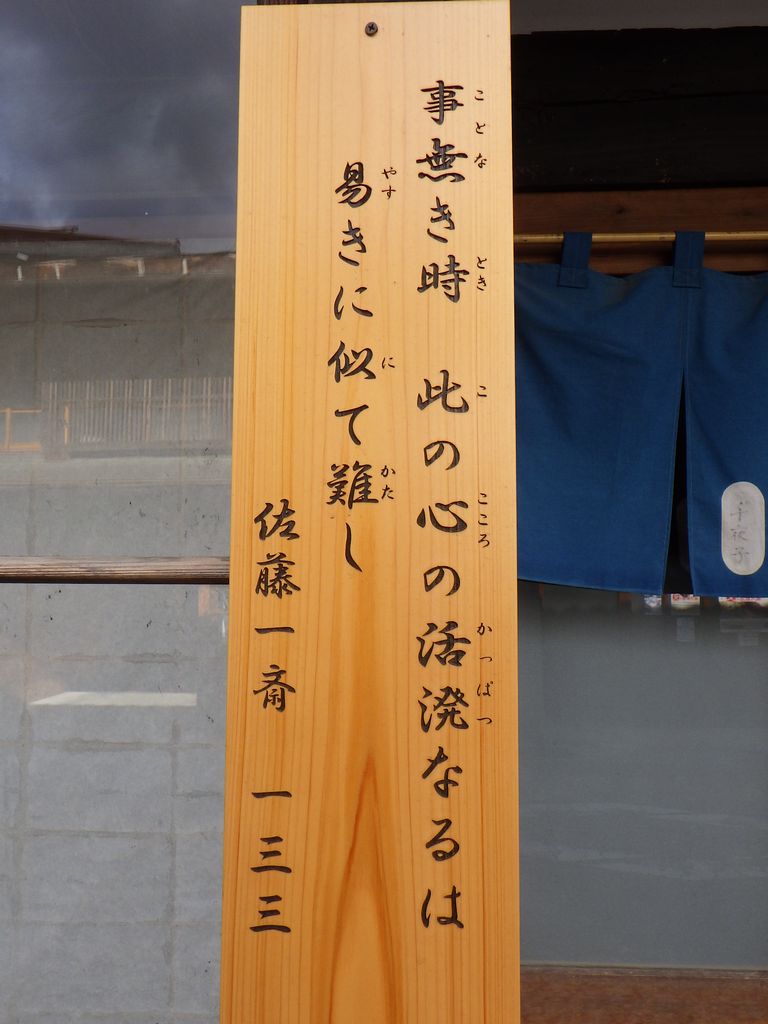 事無き時　此の心の活溌なるは
ことな　とき　こ　こころ　かっぱつ
易きに似て難し
やす　に　かた
佐藤一斎　一三三